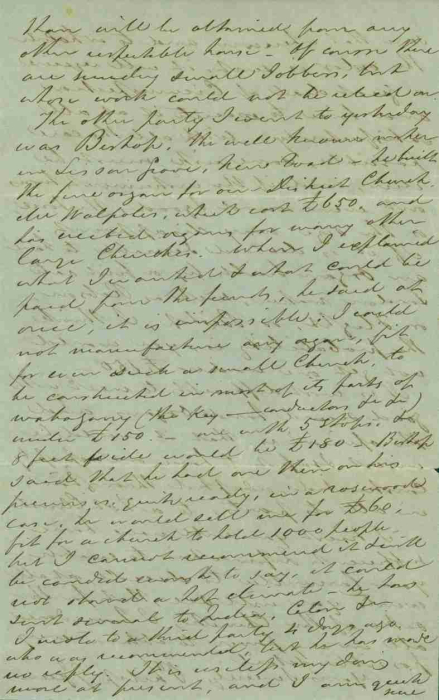 than will be obtained from any
other respectable house - Of course there
are sundry small Jobbers, but
whose work could not be relied on
The other party I went to yesterday
was Bishop, the well known maker
in Lisson Grove, New Road - he built
the fine organ for our District Church
Mr Walpoles, which cost £650, and
has erected organs for many other
large Churches. When I explained
what I wanted & what could be
paid from the funds, he said at
once, it is impossible. I could
not manufacture any organ, fit
for even such a small Church, to
be constructed in most of its parts of
mahogany (the Key - conductors &c &c)
under £150. - one with 5 stops, &
8 feet wide would be £180 - Bishop
said that he had one then on his
premises, quite ready, in a rosewood
case, he would sell me for £60,
fit for a church to hold 1000 people
but I cannot recommend it I will
be candid enough to say, it could
not stand a hot climate - he has
sent several to India, Ceylon &c
I wrote to a third party, 4 days ago
who was recommended, but he has made
no reply. It is useless my doing
more at present, and I am quite
sure